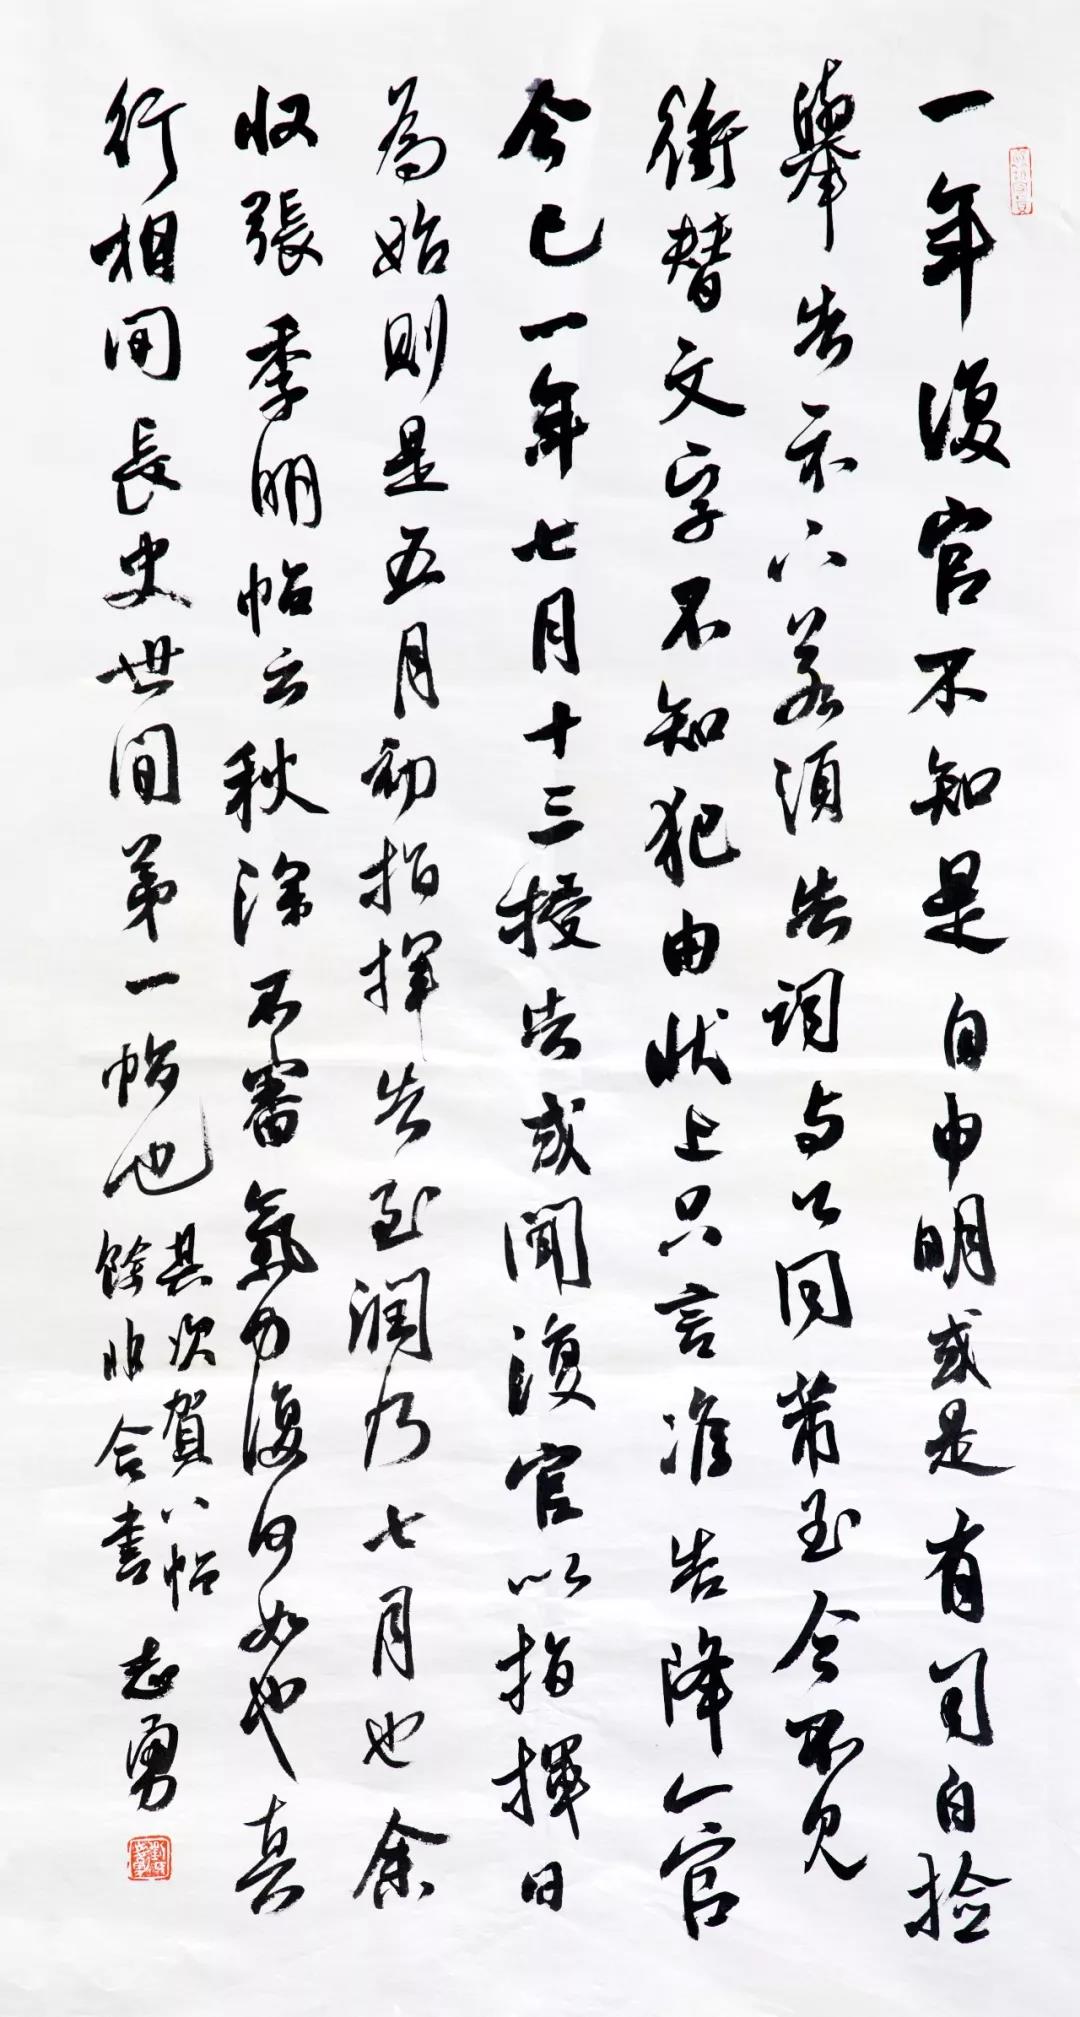 一年復官不知是自申明或是有司自檢
舉告示下若須告詞与公同帶至今不見
衝替文字不知犯由狀上只言准告降一官
今已一年七月十三授告或聞復官以指揮日
為始則是五月初指揮告至潤乃七月也余
收張季明帖云秋深不審氣力復何如也真
行相間長史世間第一帖也
其次賀八帖
餘非合書
志勇